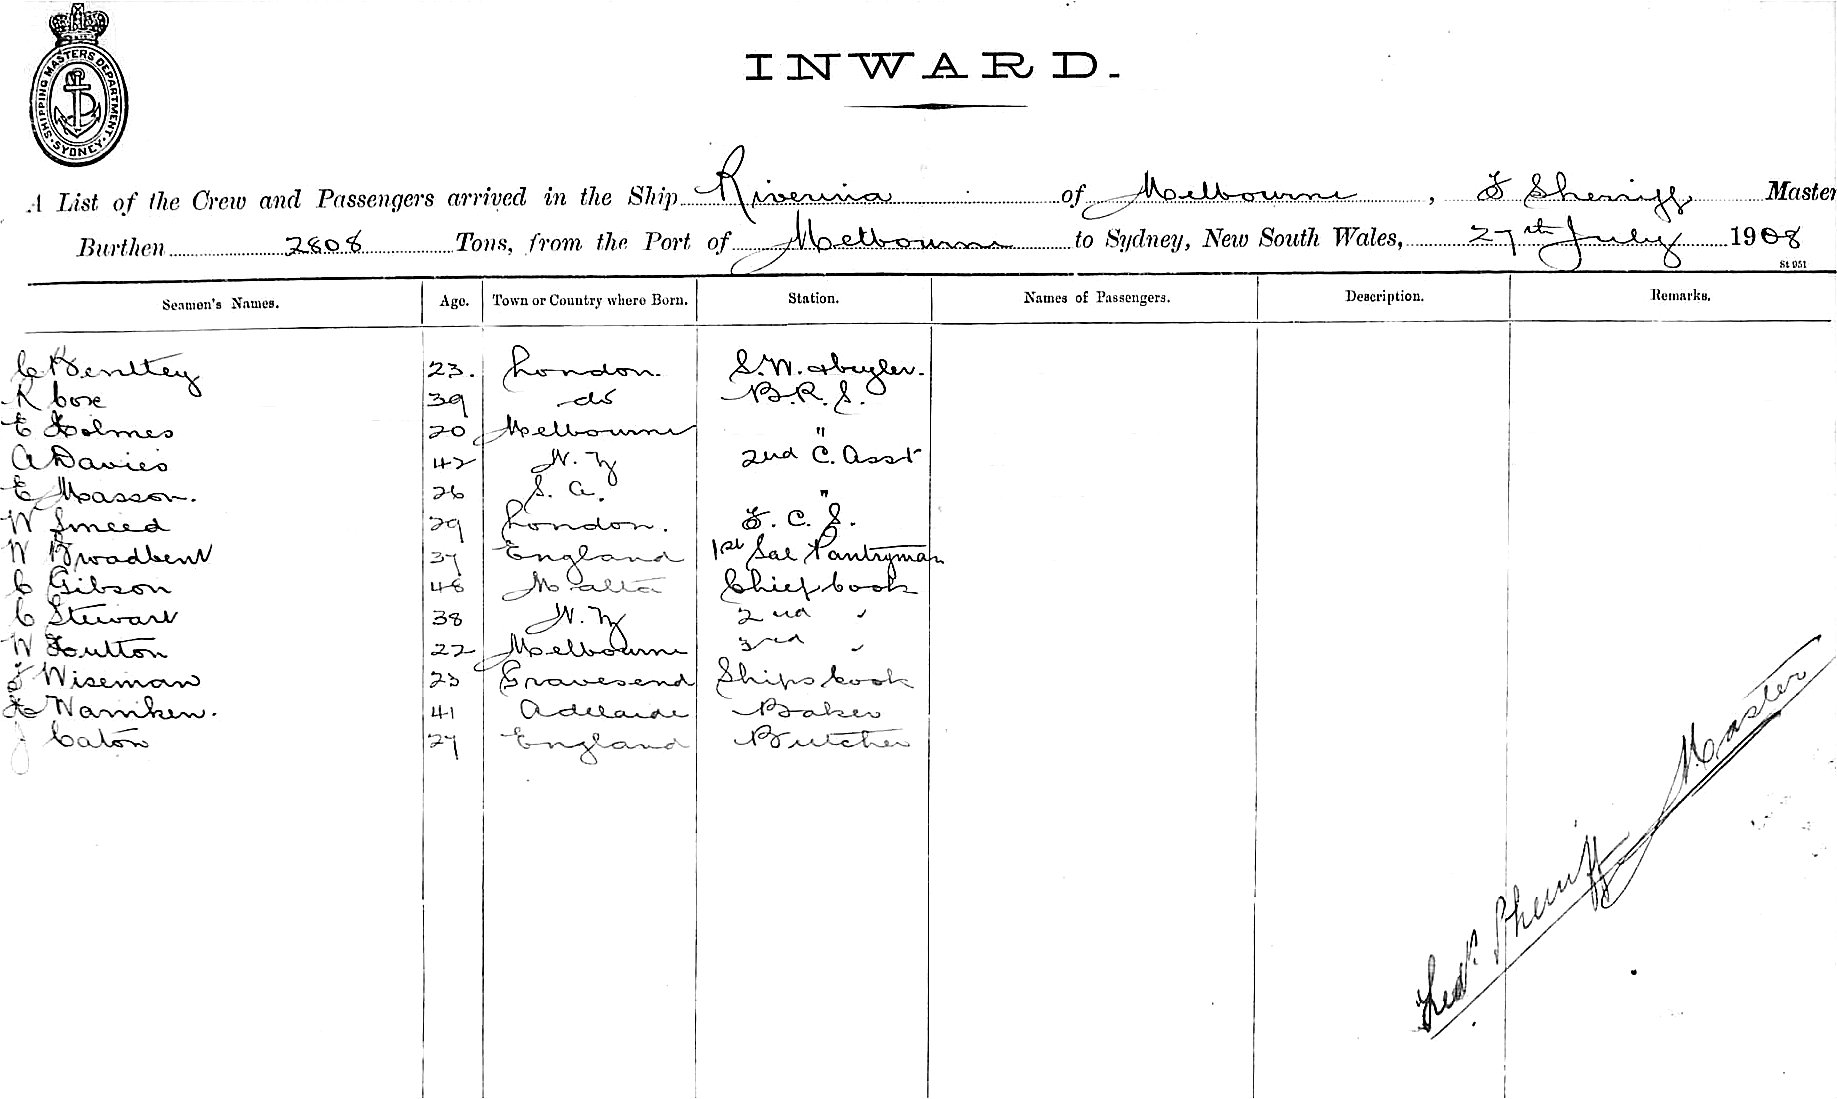 SHIPPING MASTERS DEPARTMENT
SYDNEY
INWARD.
A List of the Crew and Passengers arrived in the Ship Riverina of Melbourne, F Sherriff Master
Burthen 2808 Tons, from the Port of Melbourne to Sydney, New South Wales, 27th July 1908
St 951
Seamen's Names. Age. Town or Country where Born. Station. Names of Passengers. Description. Remarks.
C Benttey 23. London. S.W. & bugler.
R Cox 39 do B.R.S.
E Holmes 20 Melbourne "
A Davies 42 N.Z 2nd C. Asst
E Masson. 26 S. A. "
W Smeed 29 London. F. C. S.
W Broadbent 37 England 1st Sal Pantryman
C Gibson 48 Malta Chief Cook
C Stewart 38 N.Z 2nd "
W Hutton 22 Melbourne 3rd "
F Wiseman 23 Gravesend Ships Cook
H Warnken. 41 Adelaide Baker
J Caton 27 England Butcher
Fredk. Sherriff Master